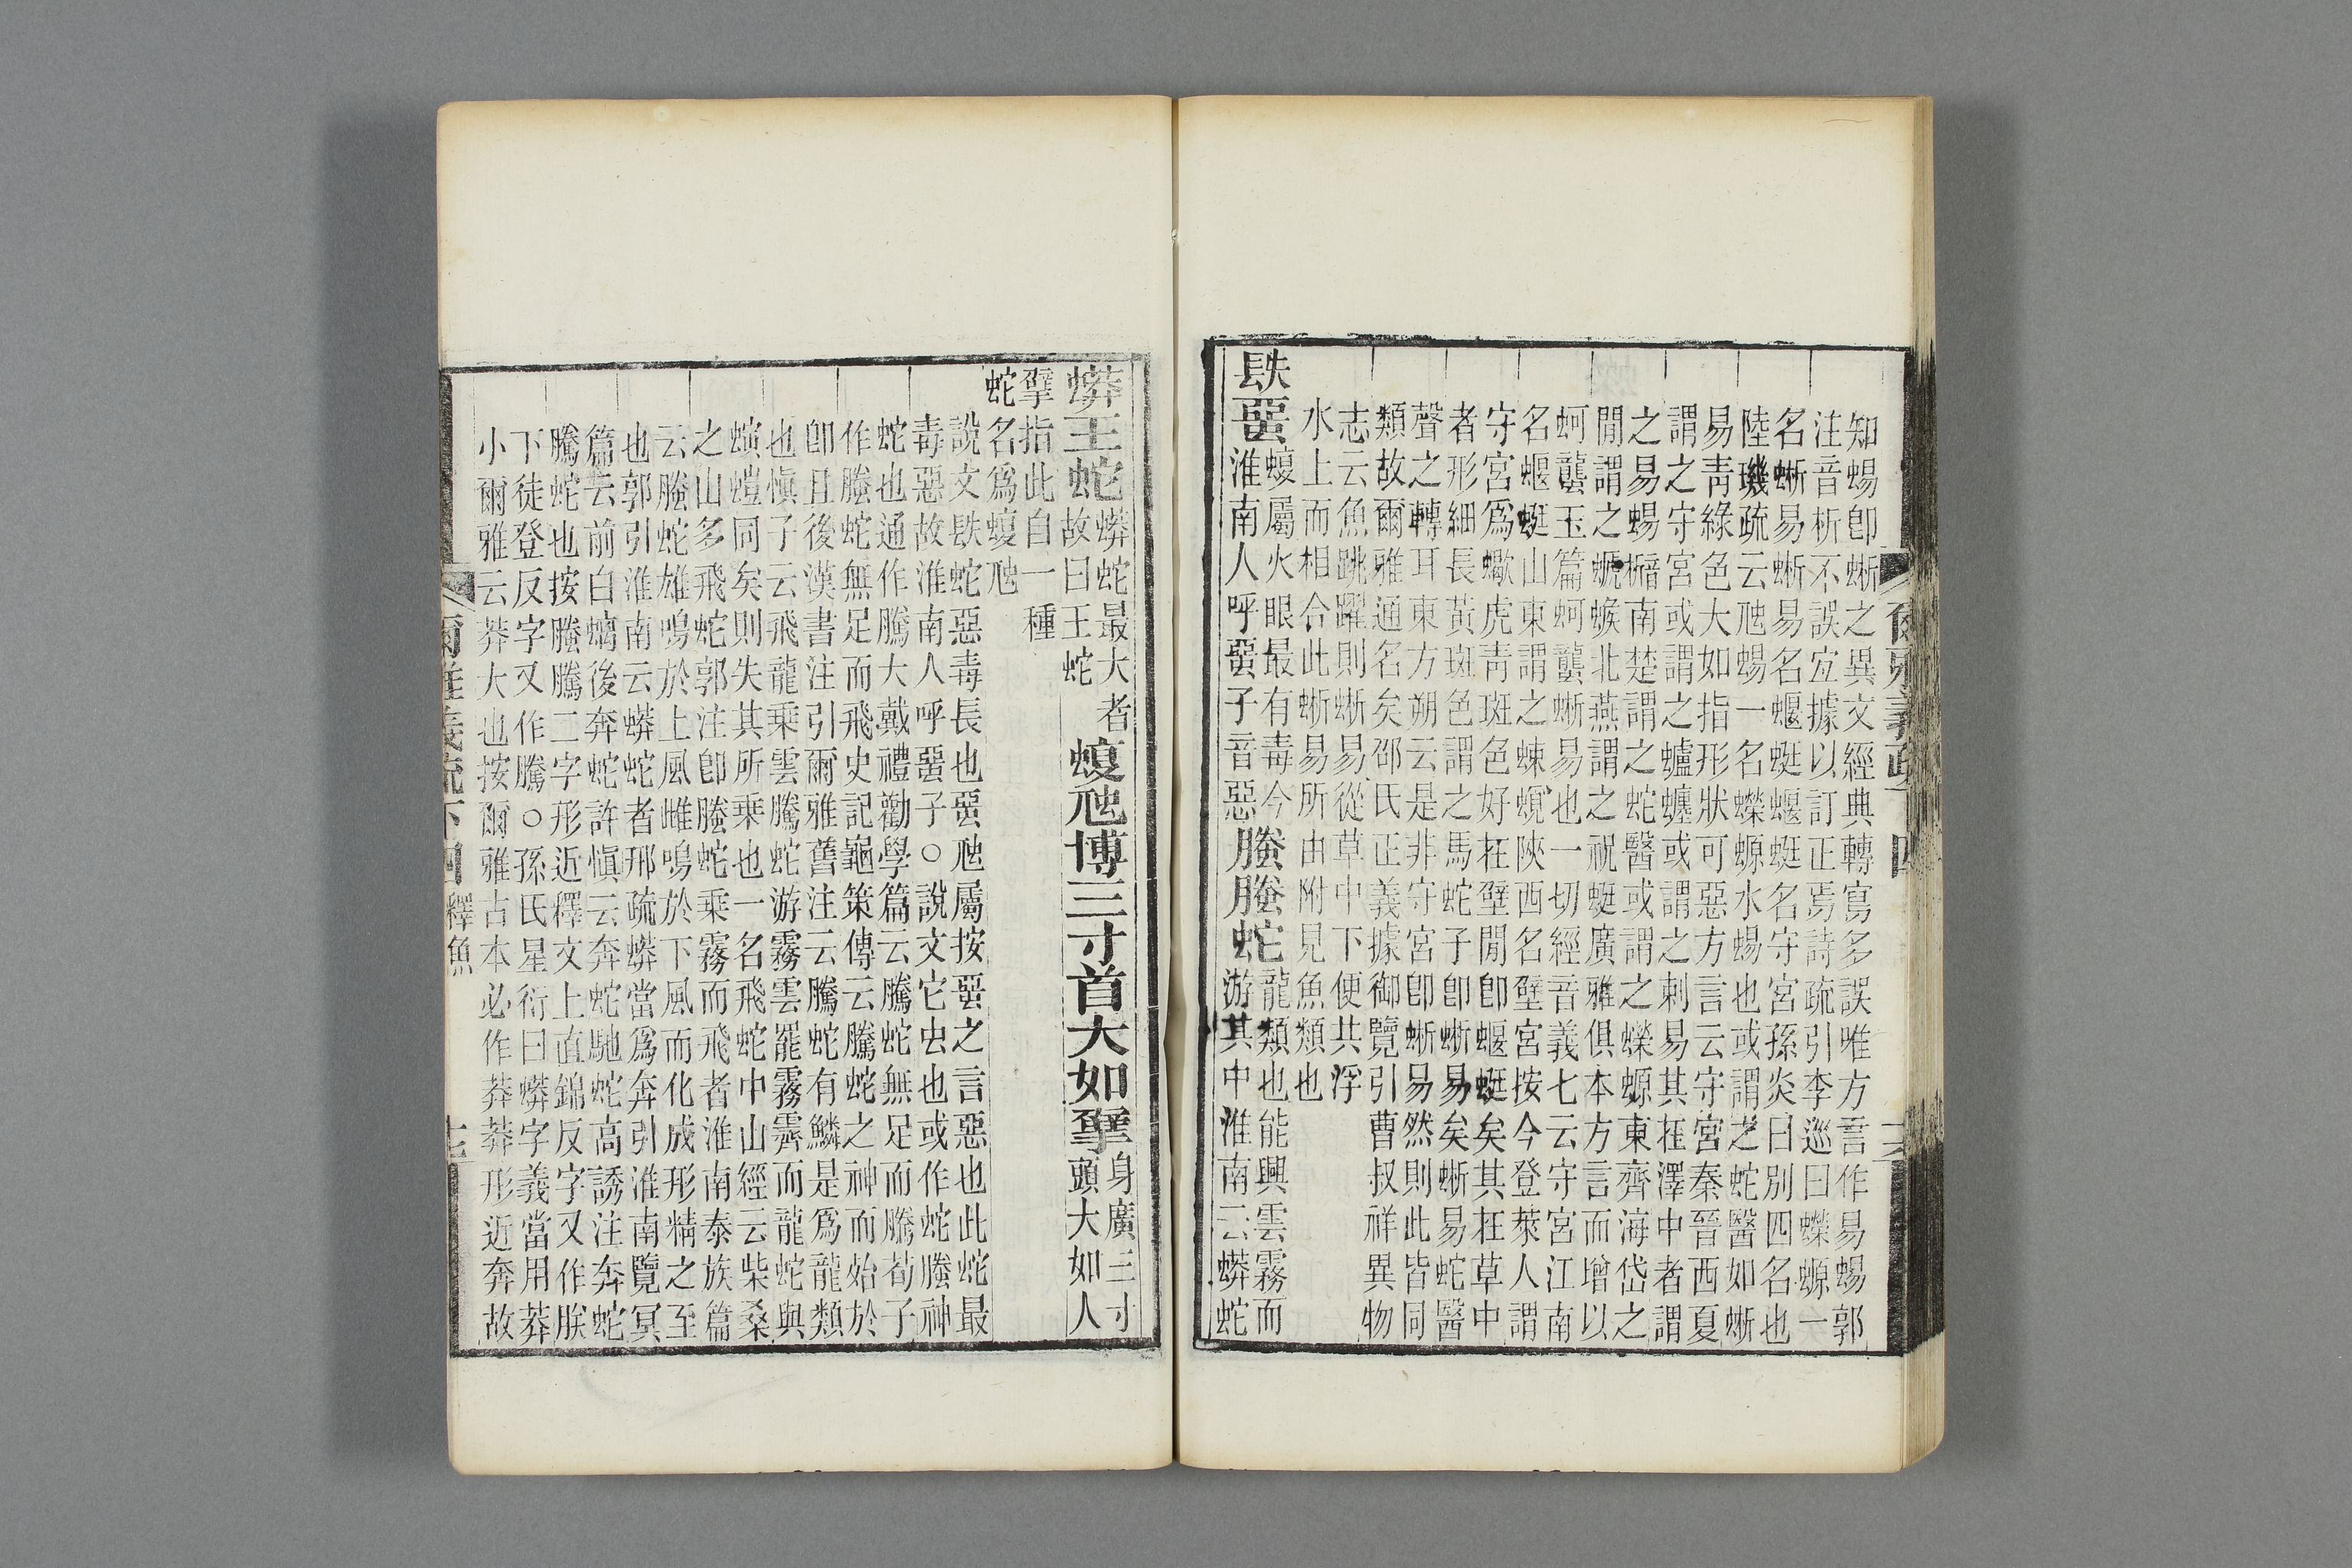 知蜴卽蜥之異文經典轉寫多誤唯方言作易蜴郭
注音析不誤宜據以訂正焉詩疏引李巡曰蠑螈一
名蜥易蜥易名蝘蜓蝘蜓名守宮孫炎曰別四名也
陸璣疏云虺蜴一名蠑螈水蜴也或謂之蛇醫如蜥
易靑綠色大如指形狀可惡方言云守宮秦晉西夏
謂之守宮或謂之蠦䗺或謂之刺易其在澤中者謂
之易蜴南楚謂之蛇醫或謂之蠑螈東齊海岱之
閒謂之螔䗔北燕謂之祝蜓廣雅俱本方言而增以
蚵蠪玉篇蚵蠪蜥易也一切經音義七云守宮江南
名蝘蜓山東謂之蝀蜆陝西名壁宮按今登萊人謂
守宮爲蠍虎靑斑色好在壁閒卽蝘蜓矣其在草中
者形細長黃斑色謂之馬蛇子卽蜥易矣蜥易蛇醫
聲之轉耳東方朔云是非守宮卽蜥易然則此皆同
類故爾雅通名矣邵氏正義據御覽引曹叔祥異物
志云魚跳躍則蜥易從草中下便共浮
水上而相合此蜥易所由附見魚類也
镻蝁 蝮屬火眼最有毒今
淮南人呼蝁子音惡 螣螣蛇 龍類也能興雲霧而
游其中淮南云蟒蛇
蟒王蛇 蟒蛇最大者
故曰王蛇 蝮虺博三寸首大如擘 身廣三寸
頭大如人
擘指此自一種
蛇名爲蝮虺
說文镻蛇惡毒長也蝁虺屬按蝁之言惡也此蛇最
毒惡故淮南人呼蝁子○說文它虫也或作蛇螣神
蛇也通作騰大戴禮勸學篇云騰蛇無足而騰荀子
作螣蛇無足而飛史記龜策傳云騰蛇之神而始於
卽且後漢書注引爾雅舊注云騰蛇有鱗是爲龍類
也愼子云飛龍乘雲騰蛇游霧雲罷霧霽而龍蛇與
螾螘同矣則失其所乘也一名飛蛇中山經云柴桑
之山多飛蛇郭注卽螣蛇乘霧而飛者淮南泰族篇
云螣蛇雄鳴於上風雌鳴於下風而化成形精之至
也郭引淮南云蟒蛇者邢疏蟒當爲奔引淮南覽冥
篇云前白螭後奔蛇許愼云奔蛇馳蛇高誘注奔蛇
騰蛇也按螣騰二字形近釋文上直錦反字又作朕
下徒登反字又作騰○孫氏星衍曰蟒字義當用莽
小爾雅云莽大也按爾雅古本必作莽莽形近奔故
爾雅義疏下四 釋魚